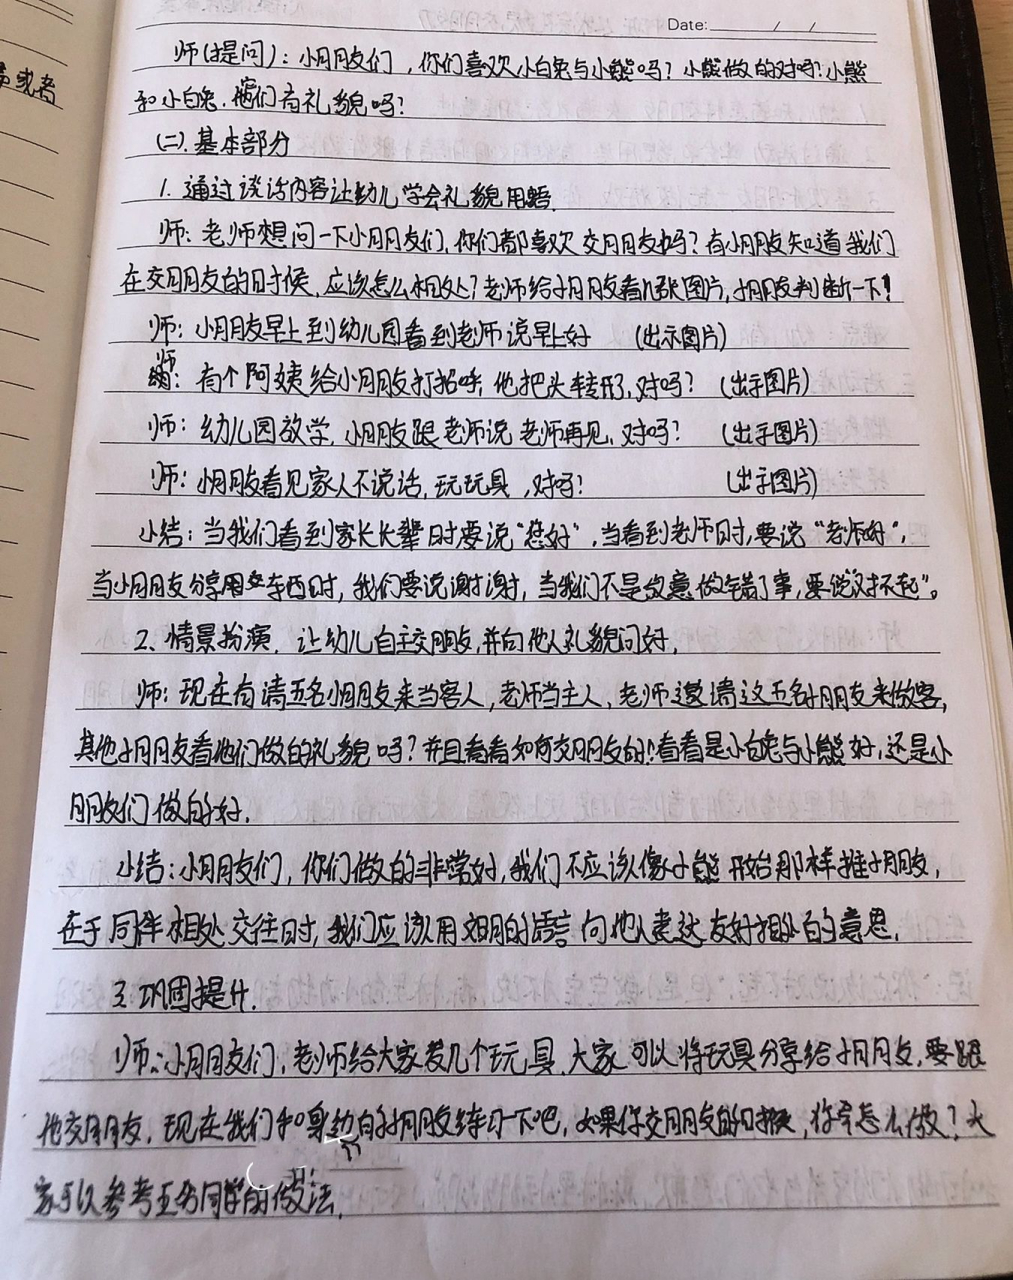 Date: / /
师(提问):小朋友们,你们喜欢小白兔与小熊吗?小熊做的对吗?小熊
和小白兔,他们有礼貌吗?
(二).基本部分
1.通过谈话内容让幼儿学会礼貌用语.
师:老师想问一下小朋友们,你们都喜欢交朋友吗?有小朋友知道我们
在交朋友的时候,应该怎么相处?老师给小朋友看几张图片,小朋友判断一下!
师:小朋友早上到幼儿园看到老师说早上好 (出示图片)
师:有个阿姨给小朋友打招呼,他把头转开,对吗? (出示图片)
师:幼儿园放学,小朋友跟老师说老师再见,对吗? (出示图片)
师:小朋友看见家人不说话,玩玩具,对吗? (出示图片)
小结:当我们看到家长长辈时要说“您好”,当看到老师时,要说“老师好”,
当小朋友分享东西时,我们要说谢谢,当我们不是故意做错了事,要说“对不起”。
2、情景扮演,让幼儿自主交朋友,并向他人礼貌问好.
师:现在有请五名小朋友来当客人,老师当主人,老师邀请这五名小朋友来做客,
其他小朋友看他们做的礼貌吗?并且看看如何交朋友的!看看是小白兔与小熊好,还是小
朋友们做的好.
小结:小朋友们,你们做的非常好,我们不应该像小熊开始那样推小朋友,
在于同伴相处交往时,我们应该用文明的语言向他人表达友好相处的意思.
3.巩固提升.
师:小朋友们,老师给大家发几个玩具,大家可以将玩具分享给小朋友,要跟
他交朋友,现在我们和身边的小朋友练习一下吧,如果你交朋友的时候,你会怎么做?大
家可以参考五名同学的做法.
或者